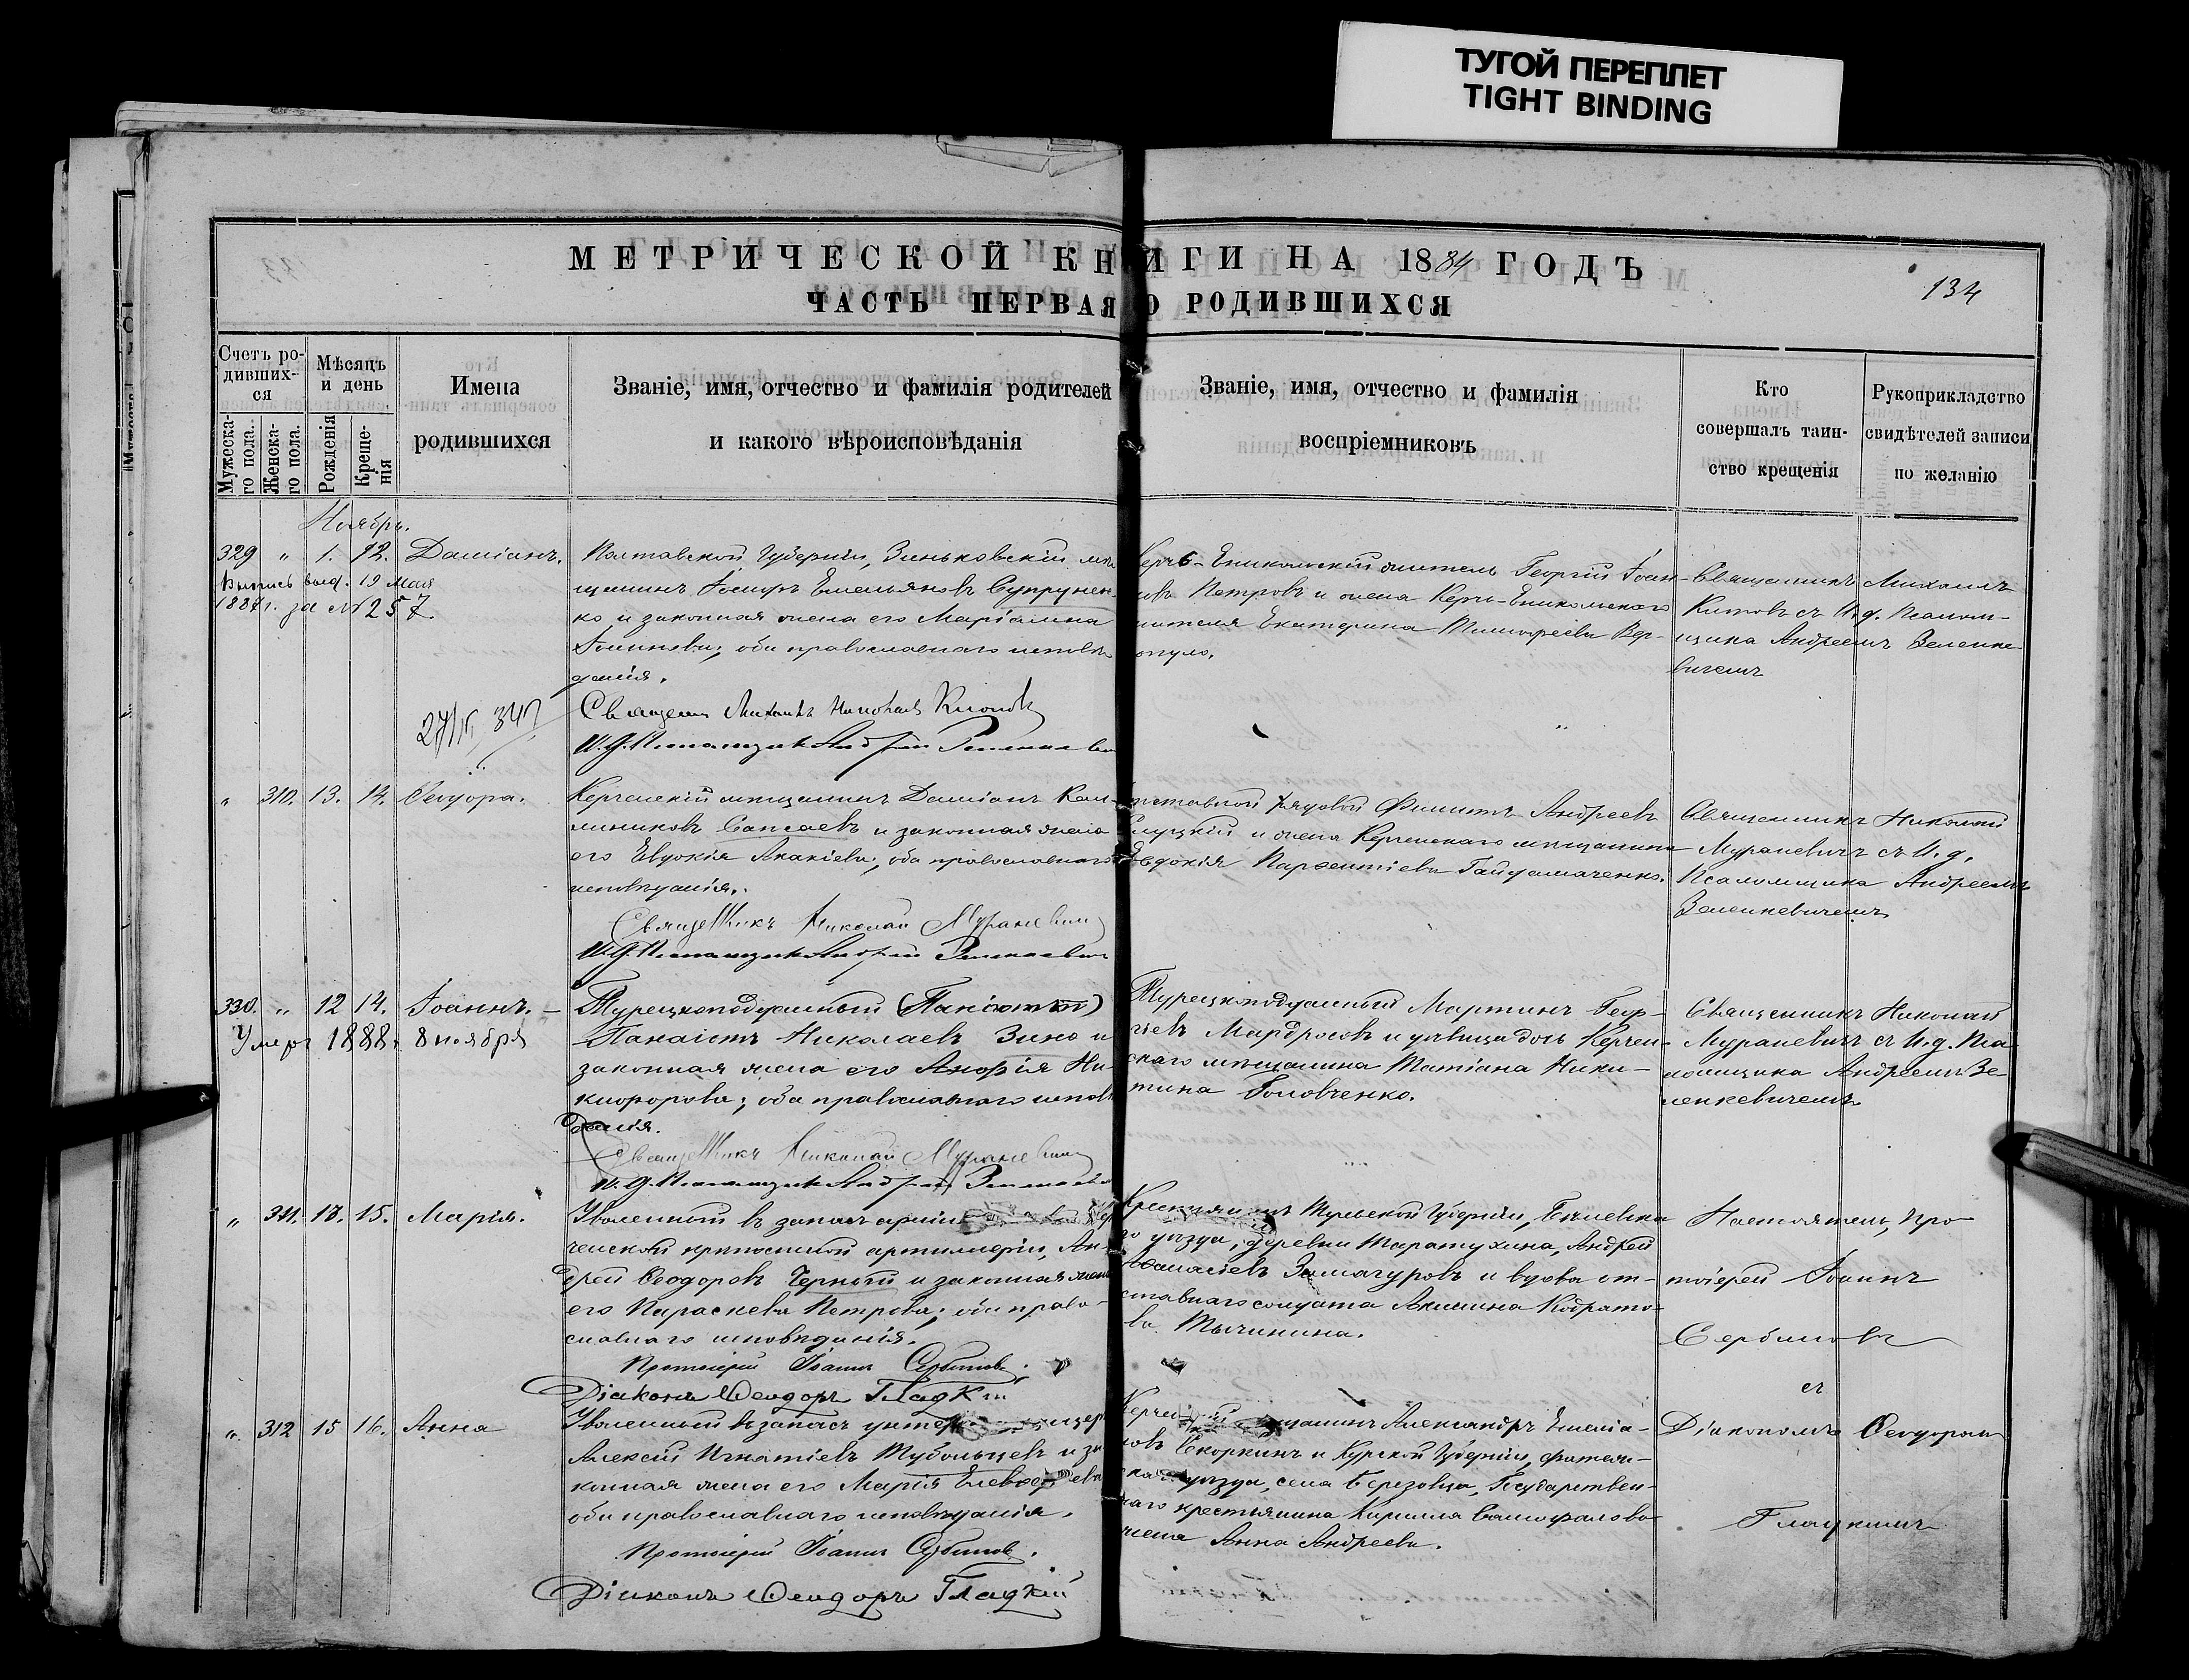 ТУГОЙ ПЕРЕПЛЕТ
TIGHT BINDING
МЕТРИЧЕСКОЙ КНИГИ НА 1884 ГОДЪ
134
ЧАСТЬ ПЕРВАЯ О РОДИВШИХСЯ
Счетъ ро-
дивших-
ся
Мужеска-
го пола.
Женска-
го пола.
Мѣсяцъ
и день
Рожденія
Креще-
нія
Имена
родившихся
Званіе, имя, отчество и фамилія родителей
и какого вѣроисповѣданія
Званіе, имя, отчество и фамилія
воспріемниковъ
Кто
совершалъ таин-
ство крещенія
Рукоприкладство
свидѣтелей записи
по желанію
Ноябрь.
329 " 1. 12. Даміанъ.
Выпись выд. 19 Мая
1887 г. за № 257
Полтавской Губерніи, Зиньковскій мѣ-
щанинъ Іосифъ Емельяновъ Супрунен-
ко и законная жена его Маріанна
Іоаннова; оба православнаго исповѣ-
данія.
Священникъ Михаилъ Китовъ
И. д. Псаломщика Андрей Зеленкевичъ
Керчь-Еникольскій житель Георгій Іоан-
новъ Петровъ и жена Керчь-Еникольскаго
жителя Екатерина Тимофеева Вер-
опуло.
Священникъ Михаилъ
Китовъ съ И. д. Псалом-
щика Андреемъ Зеленке-
вичемъ
" 310. 13. 14. Ѳеодора.
Керченскій мѣщанинъ Даміанъ
Сапсаевъ и законная жена
его Евдокія Акакіева; оба православнаго
исповѣданія.
Священникъ Николай Мураневичъ
И. д. Псаломщика Андрей Зеленкевичъ
Отставной рядовой Филиппъ Андреевъ
и жена Керченскаго мѣщанина
Евдокія Парѳентіева Гайдамаченко.
Священникъ Николай
Мураневичъ съ И. д.
Псаломщика Андреемъ
Зеленкевичемъ
330. " 12 14. Іоаннъ.
Умеръ 1888 г 8 ноября
Турецкоподданный
Панаіотъ Николаевъ Зино и
законная жена его Анфія Ни-
кифорова; оба православнаго исповѣ-
данія.
Священникъ Николай Мураневичъ
И. д. Псаломщика Андрей Зеленкевичъ
Турецкоподданный Мартинъ Геор-
гіевъ Мардросовъ и дѣвица дочь Керчен-
скаго мѣщанина Татіана Ники-
тина Головченко.
Священникъ Николай
Мураневичъ съ И. д. Пса-
ломщика Андреемъ Зе-
ленкевичемъ
" 311. 13. 15. Марія.
Уволенный въ запасъ арміи Кер-
ченской крѣпостной артиллеріи, Ан-
дрей Ѳеодоровъ Черный и законная жена
его Параскева Петрова; оба право-
славнаго исповѣданія.
Протоіерей Іоаннъ Сербиновъ.
Діаконъ Ѳеодоръ Гладкій
Крестьянинъ Тульской Губерніи, Бѣлевска-
го уѣзда, деревни Таратухина, Андрей
Аѳанасіевъ Замагуровъ и вдова от-
ставнаго солдата Акилина Кодрато-
ва Тычинина.
Настоятель, Про-
тоіерей Іоаннъ
Сербиновъ
съ
" 312 15 16. Анна
Уволенный въ запасъ
Алексей Игнатіевъ Тубольцевъ и за-
конная жена его Марія
оба православнаго исповѣданія.
Протоіерей Іоаннъ Сербиновъ.
Діаконъ Ѳеодоръ Гладкій
мѣщанинъ Александръ Емеліа-
новъ Скоркинъ и Курской Губерніи, Фатеж-
скаго уѣзда, села Березовца, Государствен-
наго крестьянина Кирилла
жена Анна Андреева.
Діакономъ Ѳеодоромъ
Гладкимъ